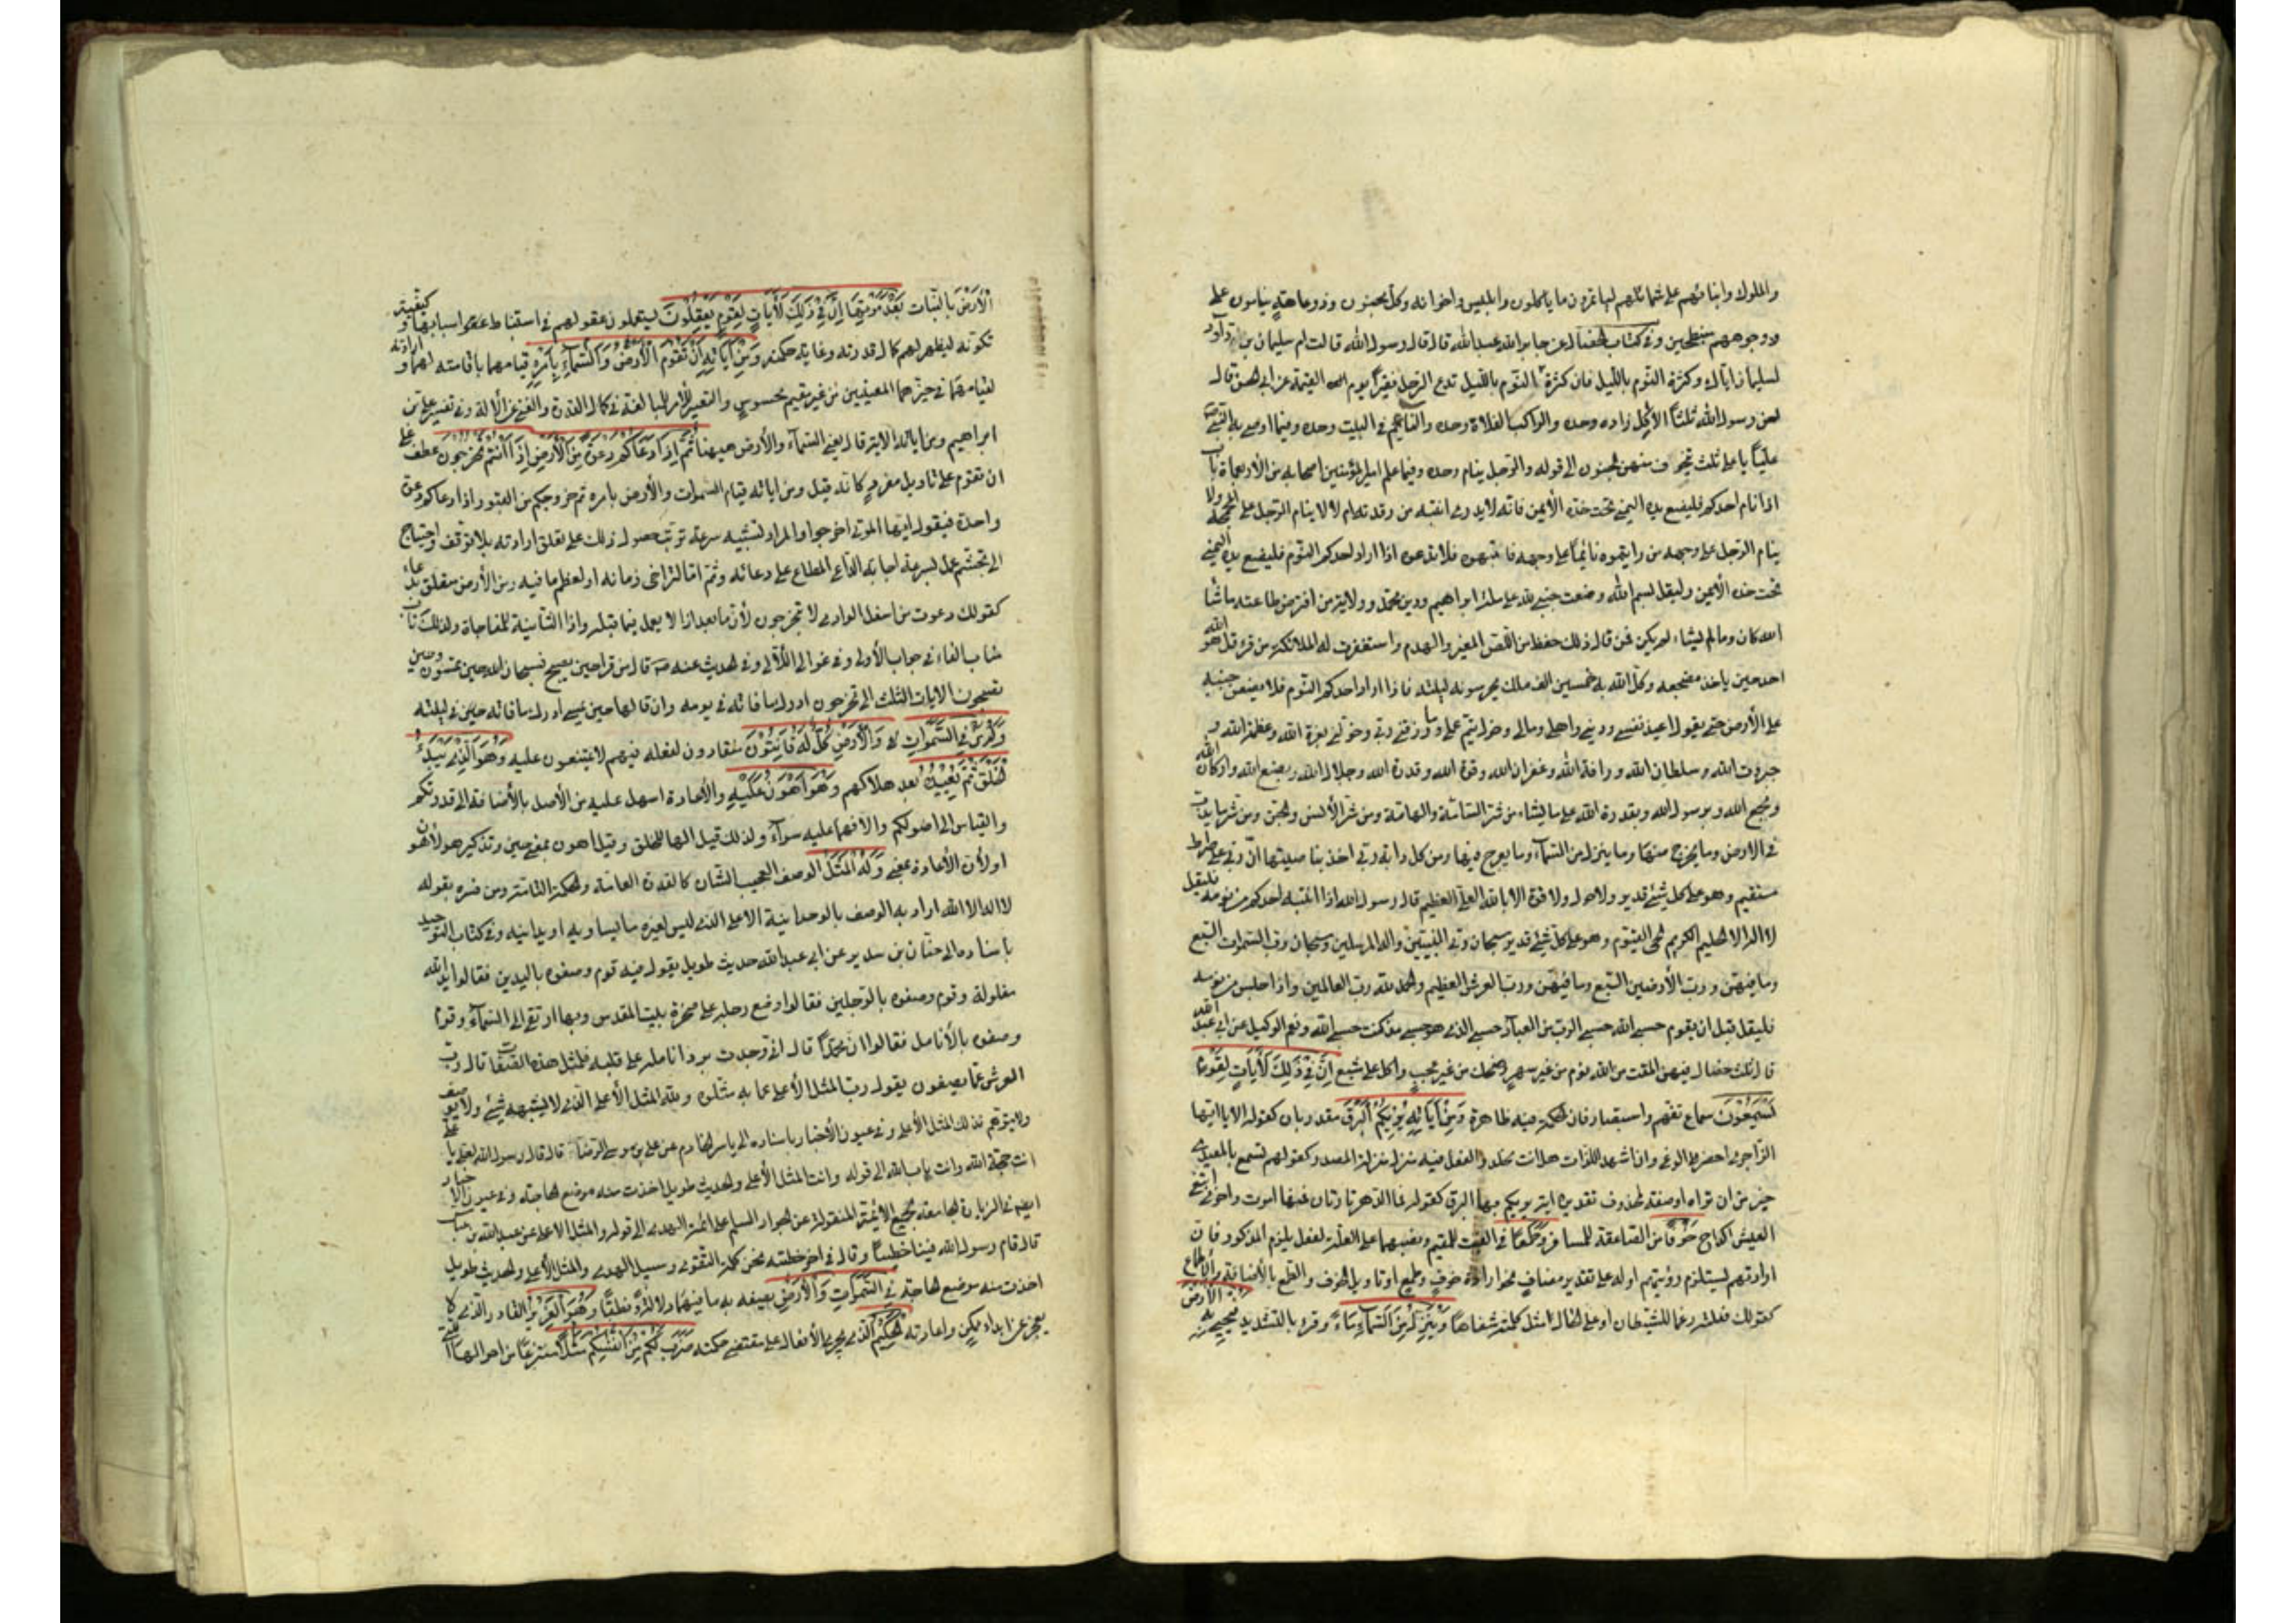 والملوك وابنائهم على شمائلهم ليستمرؤن ما يأكلون وابليس واخوانه وكل مجنون وذو عاهة ينامون على
وجوههم منبطحين وفى كتاب الخصال عن جابر بن عبدالله قال قال رسول الله قالت ام سليمان بن داود
لسليمان اياك وكثرة النوم بالليل فان كثرة النوم بالليل تدع الرجل فقيرا يوم القيمة عن ابى الحسن قال
لعن رسول الله ثلثا الآكل زاده وحده والراكب الفلاة وحده والنائم فى البيت وحده وفيما اوصى به النبى ص
عليا يا على ثلث يتخوف منهن الجنون الى قوله والرجل ينام وحده وفيما علم امير المؤمنين اصحابه من الأربعمأة باب
اذا نام احدكم فليضع يده اليمنى تحت خده الأيمن فانه لا يدرى اينتبه من رقدته ام لا لا ينام الرجل على المحجة ولا
ينام الرجل على وجهه من رايتموه نائما على وجهه فانبهوه فلا تدعوه اذا اراد احدكم النوم فليضع يده اليمنى
تحت خده الأيمن وليقل بسم الله وضعت جنبى لله على ملة ابراهيم ودين محمد وولاية من افترض طاعته ما شاء
الله كان وما لم يشاء لم يكن فمن قال ذلك حفظ من اللص المغير والهدم واستغفرت له الملائكة من قرء قل هو الله
احد حين ياخذ مضجعه وكل الله به خمسين الف ملك يحرسونه ليلته فاذا اراد احدكم النوم فلا يضعن جنبه
على الأرض حتى يقول اعيذ نفسى ودينى واهلى ومالى وخواتيم عملى وما رزقنى ربى وخولنى بعزة الله وعظمة الله و
جبروت الله وسلطان الله ورافة الله وغفران الله وقوة الله وقدرة الله وجلال الله وبصنع الله واركان الله
وبجمع الله وبرسول الله وبقدرة الله على ما يشاء من شر السامة والهامة ومن شر الأنس والجن ومن شر ما يدب
فى الارض وما يخرج منها وما ينزل من السماء وما يعرج فيها ومن كل دابة ربى اخذ بناصيتها ان ربى على صراط
مستقيم وهو على كل شيئ قدير ولا حول ولا قوة الا بالله العلى العظيم قال رسول الله اذا انتبه احدكم من نومه فليقل
لا اله الا الحليم الكريم الحى القيوم وهو على كل شيئ قدير سبحان رب النبيين واله المرسلين وسبحان رب السموات السبع
وما فيهن ورب الأرضين السبع وما فيهن ورب العرش العظيم والحمد لله رب العالمين واذا جلس من نومه
فليقل قبل ان يقوم حسبى الله حسبى الرب من العباد حسبى الذى هو حسبى مذ كنت حسبى الله ونعم الوكيل عن ابى عبد الله
قال ثلث خصال فيهن المقت من الله نوم من غير سهر وضحك من غير عجب واكل على شبع ان فى ذلك لأيات لقوم
يسمعون سماع تفهم واستبصار فان الحكمة فيه ظاهرة ومن آياته يريكم البرق مقدر بان كقوله الا يا ايها
الزاجرى احضر الوغى وان اشهد اللذات هل انت مخلدى او الفعل فيه منزل منزلة المصدر كقولهم تسمع بالمعيدى
خير من ان تراه او صفة لمحذوف تقديره اية يريكم بها البرق كقوله فما الدهر الا تارتان فمنهما اموت واخرى ابتغى
العيش اكدح خوفا من الصاعقة للمسافر وطمعا فى الغيث للمقيم ونصبهما على العلة لفعل يلزم المذكور فان
ارادتهم يستلزم رؤيتهم او له على تقدير مضاف نحو ارادة خوف وطمع او تاويل الخوف والطمع بالأخافة والأطماع
كقولك فعلته رغما للشيطان او على الحال مثل كلمته شفاها وينزل من السماء ماء وقرء بالتشديد فيحيى به الأرض
الأرض بالنبات بعد موتها ان فى ذلك لأيات لقوم يعقلون يستعملون عقولهم فى استنباط اسبابها وكيفية
تكونه ليظهر لهم كمال قدرته وغاية حكمته ومن آياته ان تقوم الأرض والسماء بامره قيامهما باقامته لهما وارادته
لقيامهما فى حيزهما المعينين من غير مقيم محسوس والتعبير بالأمر للمبالغة فى كمال القدرة والغنى عن الألة وفى تفسير على بن
ابراهيم ومن اياته الاية قال يعنى السماء والأرض هيهنا ثم اذا دعاكم دعوة من الأرض اذا انتم تخرجون عطف على
ان تقوم على تاويل مفرد كانه قيل ومن اياته قيام السموات والأرض بامره ثم خروجكم من القبور اذا دعاكم دعوة
واحدة فيقول ايتها الموتى اخرجوا والمراد تشبيه سرعة ترتب حصول ذلك على تعلق ارادته بلا توقف واحتياج
الى تجشم عمل بسرعة اجابة الداعى المطاع على دعائه وثم اما لتراخى زمانه او لعظم ما فيه ومن الأرض متعلق بدعاء
كقولك دعوت من اسفل الوادى لا تخرجون لأن ما بعد اذا لا يعمل فيما قبلها واذا الثانية للمفاجاة ولذلك ناب
مناب الفاء فى جواب الأولى وفى غوالى اللآلى وفى الحديث عنه ص قال من قرا حين يصبح فسبحان الله حين تمسون وحين
تصبحون الايات الثلث الى تخرجون ادرك ما فاته فى يومه وان قالها حين يمسى ادرك ما فاته حين فى ليلته
وله من فى السموات والأرض كل له قانتون منقادون لفعله فيهم لا يمتنعون عليه وهو الذى يبدء
الخلق ثم يعيده بعد هلاكهم وهو اهون عليه والأعادة اسهل عليه من الأصل بالأضافة الى قدرتكم
والقياس الى اصولكم والا فهما عليه سواء ولذلك قيل الها للخلق وقيل اهون بمعنى هين وتذكير هو لأهون
او لأن الأعادة بمعنى وله المثل الوصف العجيب الشان كالقدرة العامة والحكمة التامة ومن فسره بقوله
لا اله الا الله اراد به الوصف بالوحدانية الاعلى الذى ليس لغيره ما يساويه او يدانيه وفى كتاب التوحيد
باسناده الى حنان بن سدير عن ابى عبد الله حديث طويل يقول فيه قوم وصفوه باليدين فقالوا يد الله
مغلولة وقوم وصفوه بالرجلين فقالوا وضع رجله على صخرة بيت المقدس وبها ارتقى الى السماء وقوم
وصفوه بالأنامل فقالوا ان محمدا قال انى وجدت برد انامله على قلبى فلمثل هذه الصفات قال رب
العرش عما يصفون يقول رب المثل الأعلى عما به مثلوه ولله المثل الأعلى الذى لا يشبهه شيئ ولا يوصف
ولا يتوهم فذلك المثل الأعلى وفى عيون الأخبار باسناده الى ياسر الخادم عن على بن موسى الرضا قال قال رسول الله لعلى يا على
انت حجة الله وانت باب الله الى قوله وانت المثل الأعلى والحديث طويل اخذت منه موضع الحاجة وفى عيون الأخبار
ايضا فى الزيارة الجامعة لجميع الأئمة المنقولة عن الجواد السلم على ائمة الهدى الى قوله والمثل الأعلى عن عبد الله بن عباس
قال قام رسول الله فينا خطيبا وقال فى اخر خطبته نحن كلمة التقوى وسبيل الهدى والمثل الأعلى والحديث طويل
اخذت منه موضع الحاجة فى السموات والأرض يصفه به ما فيهما دلالة ونطقا وهو العزيز القادر الذى لا
يعجز عن ابداء ممكن واعادته الحكيم الذى يجرى الأفعال على مقتضى حكمته ضرب لكم من انفسكم مثلا منتزعا من احوالها